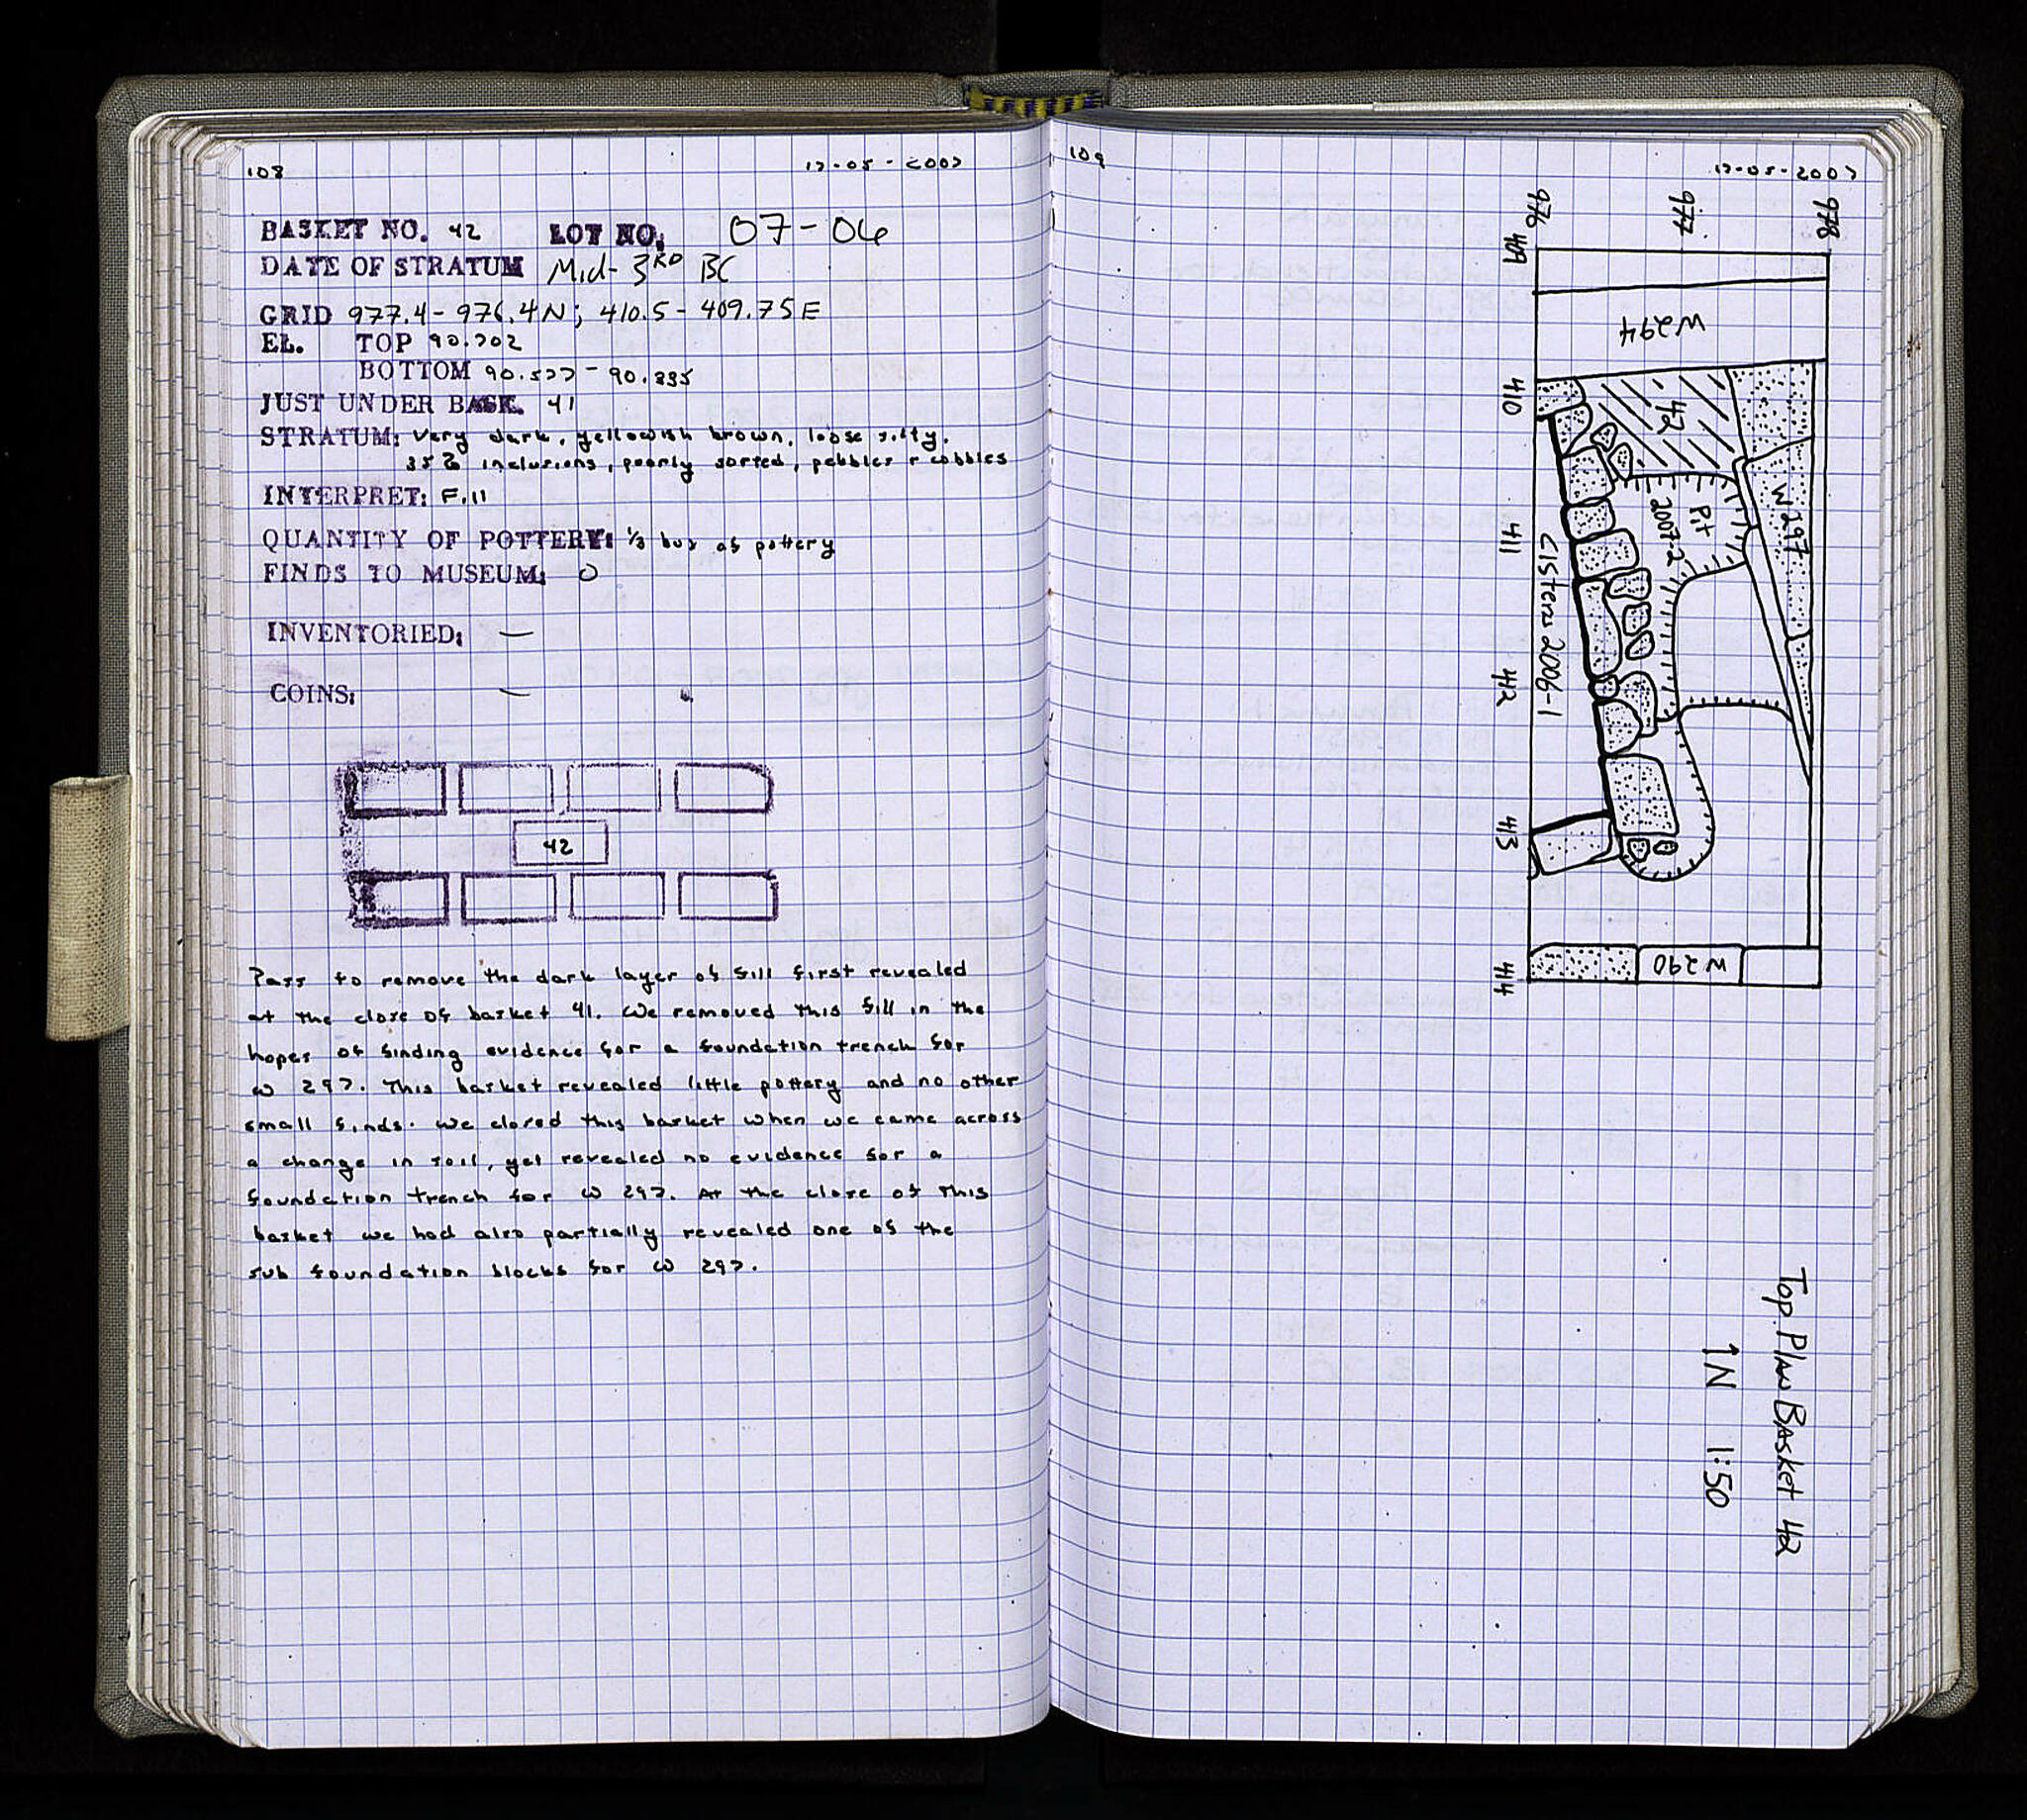 108
17-05-2007
BASKET NO. 42 LOT NO. 07-06
DATE OF STRATUM Mid-3RD BC
GRID 977.4-976.4N; 410.5-409.75E
EL. TOP 90.702
BOTTOM 90.577-90.
JUST UNDER BASK. 41
STRATUM: Very dark, yellowish brown, loose silty.
35% inclusions, poorly sorted, pebbles + cobbles
INTERPRET: Fill
QUANTITY OF POTTERY: 1/3 box of pottery
FINDS TO MUSEUM: 0
INVENTORIED: —
COINS: —
42
Pass to remove the dark layer of fill first revealed
at the close of basket 41. We removed this fill in the
hopes of finding evidence for a foundation trench for
W 297. This basket revealed little pottery and no other
small finds. We closed this basket when we came across
a change in soil, yet revealed no evidence for a
foundation trench for W 297. At the close of this
basket we had also partially revealed one of the
sub foundation blocks for W 297.
109
17-05-2007
976
977
978
409
410
411
412
413
414
W294
42
W297
Pit
2007-2
Cistern 2006-1
W290
Top Plan Basket 42
↑N 1:50